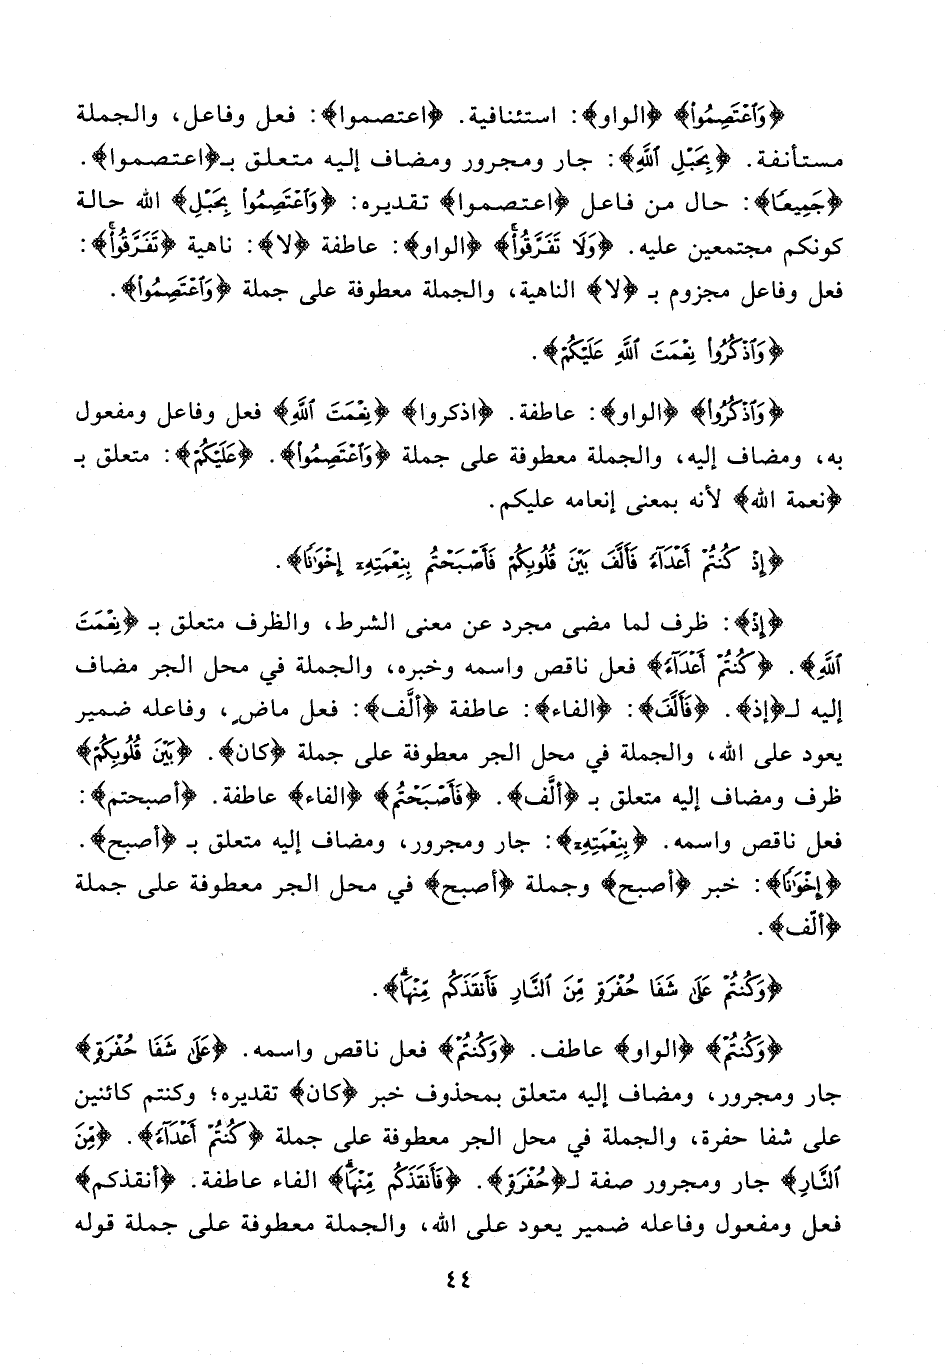 ﴿وَٱعْتَصِمُوا۟﴾ ﴿الواو﴾: استئنافية. ﴿اعتصموا﴾: فعل وفاعل، والجملة
مستأنفة. ﴿بِحَبْلِ ٱللَّهِ﴾: جار ومجرور ومضاف إليه متعلق بـ﴿اعتصموا﴾.
﴿جَمِيعًا﴾: حال من فاعل ﴿اعتصموا﴾ تقديره: ﴿وَٱعْتَصِمُوا۟ بِحَبْلِ﴾ الله حالة
كونكم مجتمعين عليه. ﴿وَلَا تَفَرَّقُوا۟ۚ﴾ ﴿الواو﴾: عاطفة ﴿لا﴾: ناهية ﴿تَفَرَّقُوا۟ۚ﴾:
فعل وفاعل مجزوم بـ ﴿لا﴾ الناهية، والجملة معطوفة على جملة ﴿وَٱعْتَصِمُوا۟﴾.
﴿وَٱذْكُرُوا۟ نِعْمَتَ ٱللَّهِ عَلَيْكُمْ﴾.
﴿وَٱذْكُرُوا۟﴾ ﴿الواو﴾: عاطفة. ﴿اذكروا﴾ ﴿نِعْمَتَ ٱللَّهِ﴾ فعل وفاعل ومفعول
به، ومضاف إليه، والجملة معطوفة على جملة ﴿وَٱعْتَصِمُوا۟﴾. ﴿عَلَيْكُمْ﴾: متعلق بـ
﴿نعمة الله﴾ لأنه بمعنى إنعامه عليكم.
﴿إِذْ كُنتُمْ أَعْدَآءً فَأَلَّفَ بَيْنَ قُلُوبِكُمْ فَأَصْبَحْتُم بِنِعْمَتِهِۦٓ إِخْوَٰنًا﴾.
﴿إِذْ﴾: ظرف لما مضى مجرد عن معنى الشرط، والظرف متعلق بـ ﴿نِعْمَتَ
ٱللَّهِ﴾. ﴿كُنتُمْ أَعْدَآءً﴾ فعل ناقص واسمه وخبره، والجملة في محل الجر مضاف
إليه لـ﴿إذ﴾. ﴿فَأَلَّفَ﴾: ﴿الفاء﴾: عاطفة ﴿ألَّف﴾: فعل ماضٍ، وفاعله ضمير
يعود على الله، والجملة في محل الجر معطوفة على جملة ﴿كان﴾. ﴿بَيْنَ قُلُوبِكُمْ﴾
ظرف ومضاف إليه متعلق بـ ﴿ألَّف﴾. ﴿فَأَصْبَحْتُم﴾ ﴿الفاء﴾ عاطفة. ﴿أصبحتم﴾:
فعل ناقص واسمه. ﴿بِنِعْمَتِهِۦٓ﴾: جار ومجرور، ومضاف إليه متعلق بـ ﴿أصبح﴾.
﴿إِخْوَٰنًا﴾: خبر ﴿أصبح﴾ وجملة ﴿أصبح﴾ في محل الجر معطوفة على جملة
﴿ألّف﴾.
﴿وَكُنتُمْ عَلَىٰ شَفَا حُفْرَةٍ مِّنَ ٱلنَّارِ فَأَنقَذَكُم مِّنْهَاۗ﴾.
﴿وَكُنتُمْ﴾ ﴿الواو﴾ عاطف. ﴿وَكُنتُمْ﴾ فعل ناقص واسمه. ﴿عَلَىٰ شَفَا حُفْرَةٍ﴾
جار ومجرور، ومضاف إليه متعلق بمحذوف خبر ﴿كان﴾ تقديره؛ وكنتم كائنين
على شفا حفرة، والجملة في محل الجر معطوفة على جملة ﴿كُنتُمْ أَعْدَآءً﴾. ﴿مِّنَ
ٱلنَّارِ﴾ جار ومجرور صفة لـ﴿حُفْرَةٍ﴾. ﴿فَأَنقَذَكُم مِّنْهَاۗ﴾ الفاء عاطفة. ﴿أنقذكم﴾
فعل ومفعول وفاعله ضمير يعود على الله، والجملة معطوفة على جملة قوله
٤٤